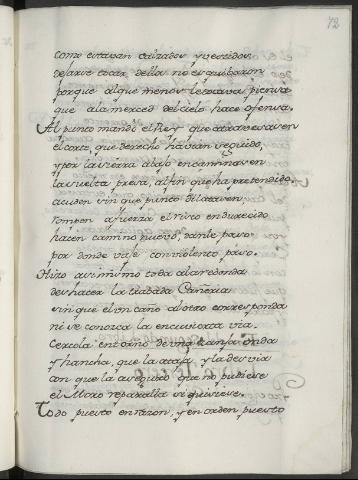 72
como estavan calzados y vestidos
dejarse tocar dellos no esquibaron
porque al que menos le stava piensa
que a la merced del cielo hace ofensa.
Al punto mandó el Rey que atravesasen
el corte, que derecho havian seguido,
y por la sierra abajo encaminasen
la vuelta presa, al fin que ha pretendido
acuden sin que punto dilatasen,
rompen a fuerza el risco endurecido
hacen camino nuevo, danle paso
por donde vaje con violento paso.
Hizo asimismo toda a la redonda
deshacer la Ciudad
sin que el un caño al otro corresponda
ni se conozca la encubierta via.
Cercola en torno de una zanja onda
y hancha, que la ataja y la desvia
con que la aseguró que no pudiese
el Moro reparalla si quisiese.
Todo puesto en razon, y en orden puesto